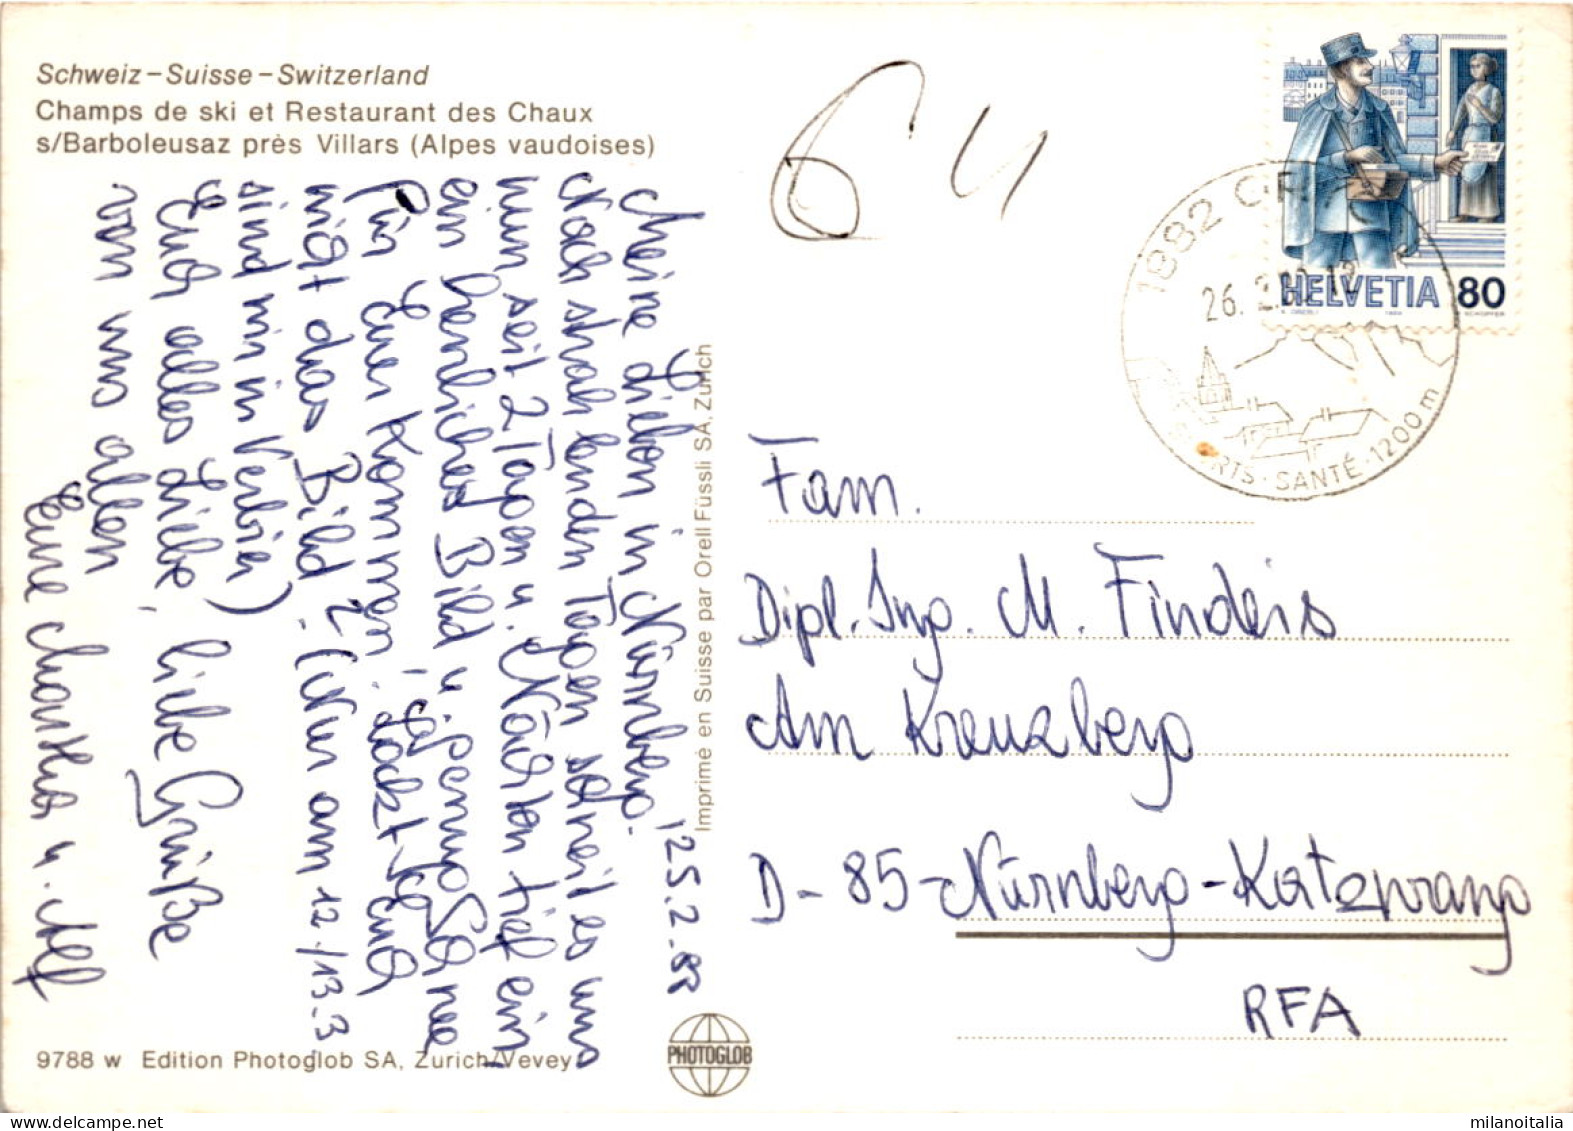 Schweiz – Suisse – Switzerland
Champs de ski et Restaurant des Chaux
s/Barboleusaz près Villars (Alpes vaudoises)
25.2.88
Meine Lieben in Nürnberg.
Nach strahlenden Tagen schneit es uns
nun seit 2 Tagen u. Nächten tief ein,
ein herrliches Bild u. genug Schnee
für Euer Kommen, lockt Euch
nicht das Bild? (Nur am 12./13.3
sind wir in Verbier)
Euch alles Liebe, liebe Grüße
von uns allen
Eure u. Alf
64
HELVETIA 80
1882
26. 2. 12
SPORTS · SANTÉ · 1200 m
Fam.
Dipl. Ing. M. Finders
Am Kreuzberg
D - 85 - Nürnberg - Katzwang
RFA
Imprimé en Suisse par Orell Füssli SA, Zurich
9788 w Edition Photoglob SA, Zurich/Vevey
PHOTOGLOB
milanoitalia